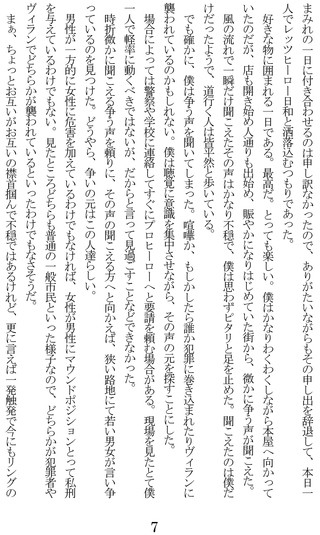 まみれの一日に付き合わせるのは申し訳なかったので、ありがたいながらもその申し出を辞退して、本日一
人でレッツヒーロー日和と洒落込むつもりであった。
　好きな物に囲まれる一日である。最高だ。とっても楽しい。僕はかなりわくわくしながら本屋へ向かって
いたのだが、店も開き始め人通りも出始め、賑やかになりはじめていた街から、微かに争う声が聞こえた。
　風の流れで一瞬だけ聞こえたその声はかなり不穏で、僕は思わずピタリと足を止めた。聞こえたのは僕だ
けだったようで、道行く人は皆平然と歩いている。
　でも確かに、僕は争う声を聞いてしまった。喧嘩か、もしかしたら誰か犯罪に巻き込まれたりヴィランに
襲われているのかもしれない。僕は聴覚に意識を集中させながら、その声の元を探すことにした。
　場合によっては警察や学校に連絡してすぐにプロヒーローへと要請を頼む場合がある。現場を見たとて僕
一人で軽率に動くべきではないが、だからと言って見過ごすことなどできなかった。
　時折微かに聞こえる争う声を頼りに、その声の聞こえる方へと向かえば、狭い路地にて若い男女が言い争
っているのを見つけた。どうやら、争いの元はこの人達らしい。
　男性が一方的に女性に危害を加えているわけでもなければ、女性が男性にマウンドポジションとって私刑
を与えているわけでもない。見たところどちらも普通の一般市民といった様子なので、どちらかが犯罪者や
ヴィランでどちらかが襲われているといったわけでもなさそうだ。
　まぁ、ちょっとお互いがお互いの襟首掴んで不穏ではあるけれど、更に言えば一発触発で今にもリングの
7